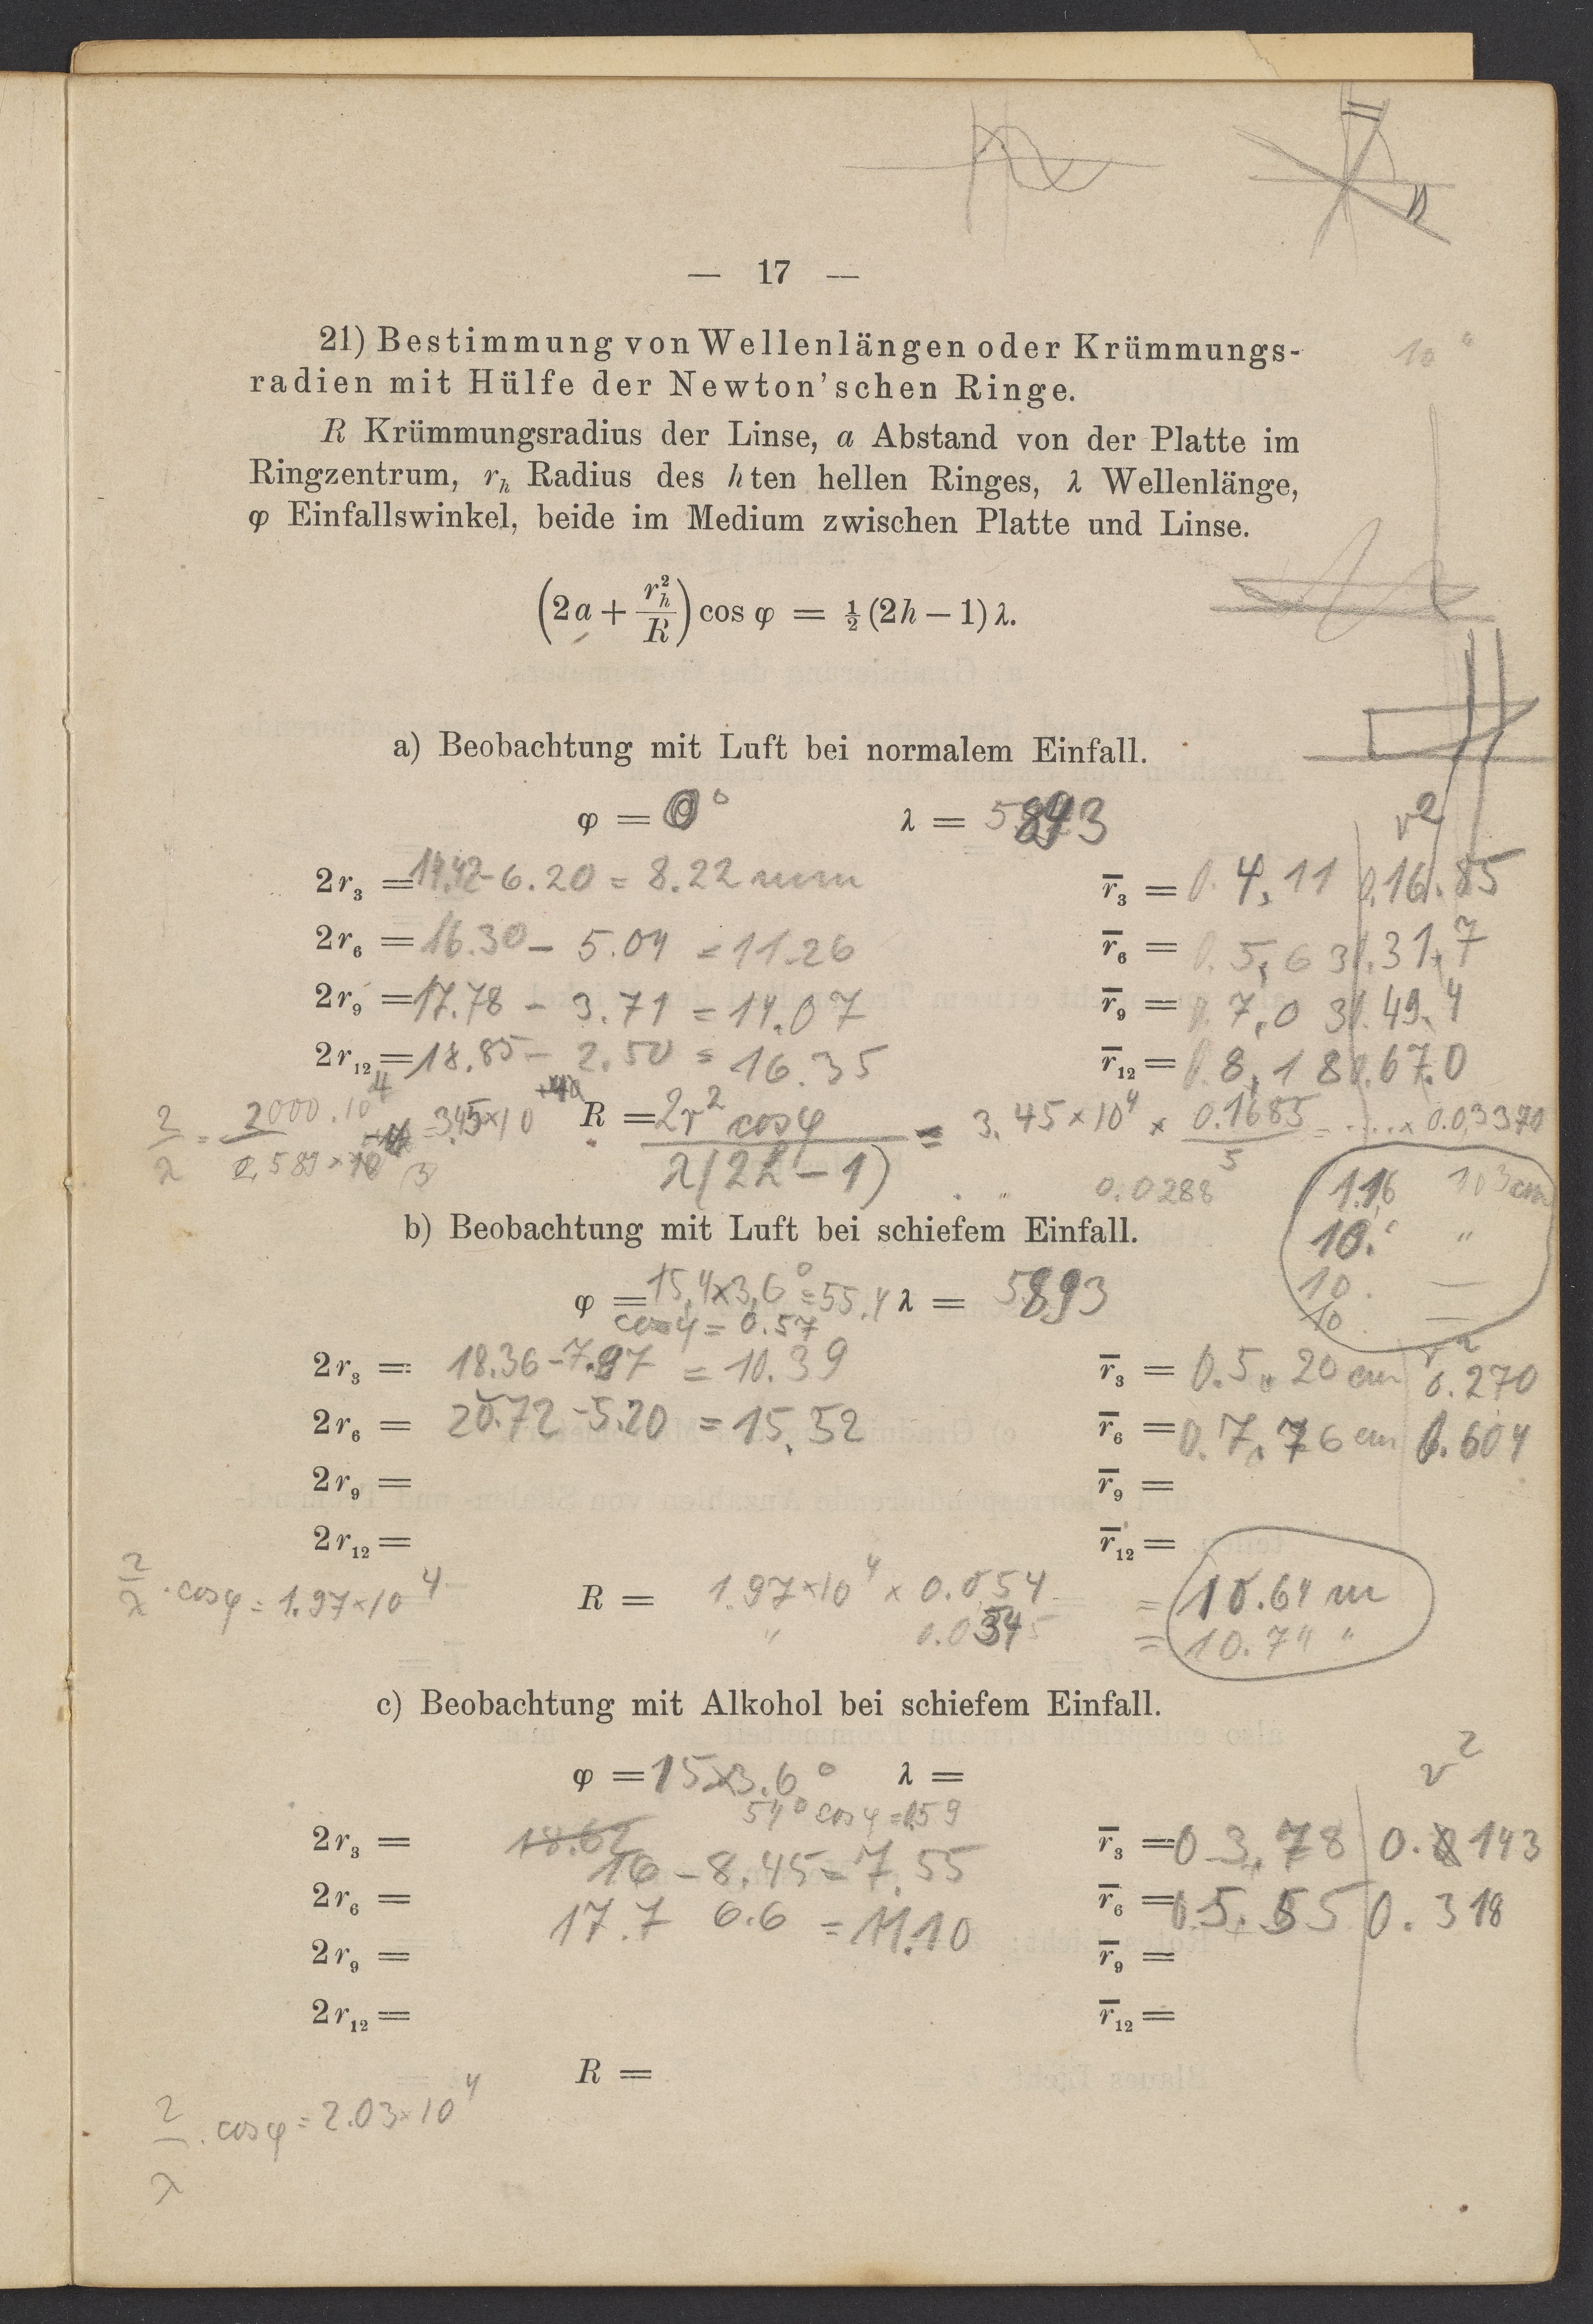 — 17 —
10°
21) Bestimmung von Wellenlängen oder Krümmungs-
radien mit Hülfe der Newton'schen Ringe.
R Krümmungsradius der Linse, a Abstand von der Platte im
Ringzentrum, r_h Radius des hten hellen Ringes, λ Wellenlänge,
φ Einfallswinkel, beide im Medium zwischen Platte und Linse.
(2a + r_h²/R) cos φ = ½ (2h – 1) λ.
a) Beobachtung mit Luft bei normalem Einfall.
φ = 0° λ = 5893 r²
2r₃ = 14.42 - 6.20 = 8.22 mm r̅₃ = 0.4,11 0.16.85
2r₆ = 16.30 - 5.04 = 11.26 r̅₆ = 0.5,63 0.31,7
2r₉ = 17.78 - 3.71 = 14.07 r̅₉ = 0.7,03 0.49.4
2r₁₂ = 18.85 - 2.50 = 16.35 r̅₁₂ = 0.8,18 0.67.0
2/λ = 3.45×10⁴ R = 2r² cos φ / λ(2h – 1) = 3.45×10⁴ × 0.1685/5 = ..... × 0.03370
" 0.0288
1.16 10³ cm
10. "
10. —
10 —
b) Beobachtung mit Luft bei schiefem Einfall.
φ = 15,4×3,6° = 55.4 λ = 5893
cos φ = 0.57
2r₃ = 18.36 - 7.97 = 10.39 r̅₃ = 0.5,20 cm 0.270
2r₆ = 20.72 - 5.20 = 15,52 r̅₆ = 0.7,76 cm 0.604
2r₉ = r̅₉ =
2r₁₂ = r̅₁₂ =
2/λ · cos φ = 1.97×10⁴ R = 1.97×10⁴ × 0.054 = 10.64 m
" = 10.74 "
c) Beobachtung mit Alkohol bei schiefem Einfall.
φ = 15×3.6° λ = r²
54° cos φ = 0,59
2r₃ = 18.62 r̅₃ = 0 3,78 0.143
16 - 8.45 = 7.55
2r₆ = 17.7 6.6 = 11.10 r̅₆ = 0.5,55 0.318
2r₉ = r̅₉ =
2r₁₂ = r̅₁₂ =
R =
2/λ . cos φ = 2.03×10⁴